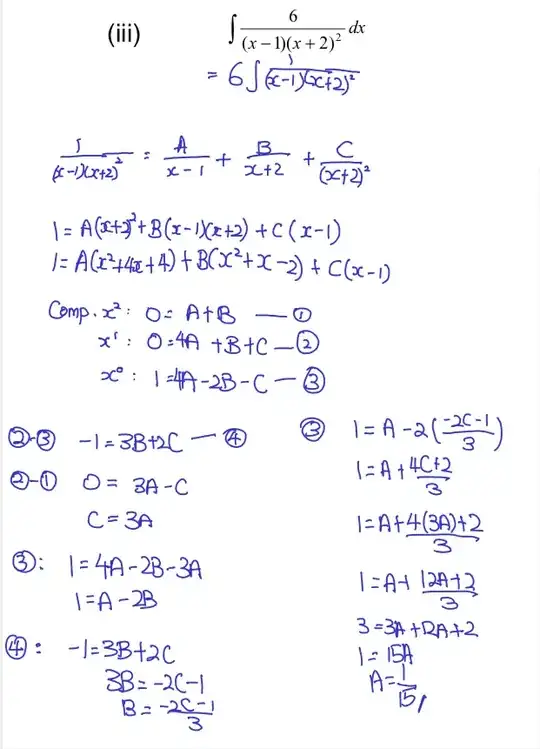 (iii) ∫ 6/((x−1)(x+2)²) dx
= 6 ∫ 1/((x−1)(x+2)²)
1/((x−1)(x+2)²) = A/(x−1) + B/(x+2) + C/(x+2)²
1 = A(x+2)² + B(x−1)(x+2) + C(x−1)
1 = A(x²+4x+4) + B(x²+x−2) + C(x−1)
Comp. x² : 0 = A+B — ①
x¹ : 0 = 4A + B + C — ②
x⁰ : 1 = 4A − 2B − C — ③
②−③ −1 = 3B+2C — ④
②−① 0 = 3A − C
C = 3A
③: 1 = 4A − 2B − 3A
1 = A − 2B
④: −1 = 3B+2C
3B = −2C−1
B = (−2C−1)/3
③ 1 = A − 2((−2C−1)/3)
1 = A + (4C+2)/3
1 = A + (4(3A)+2)/3
1 = A + (12A+2)/3
3 = 3A + 12A + 2
1 = 15A
A = 1/15,